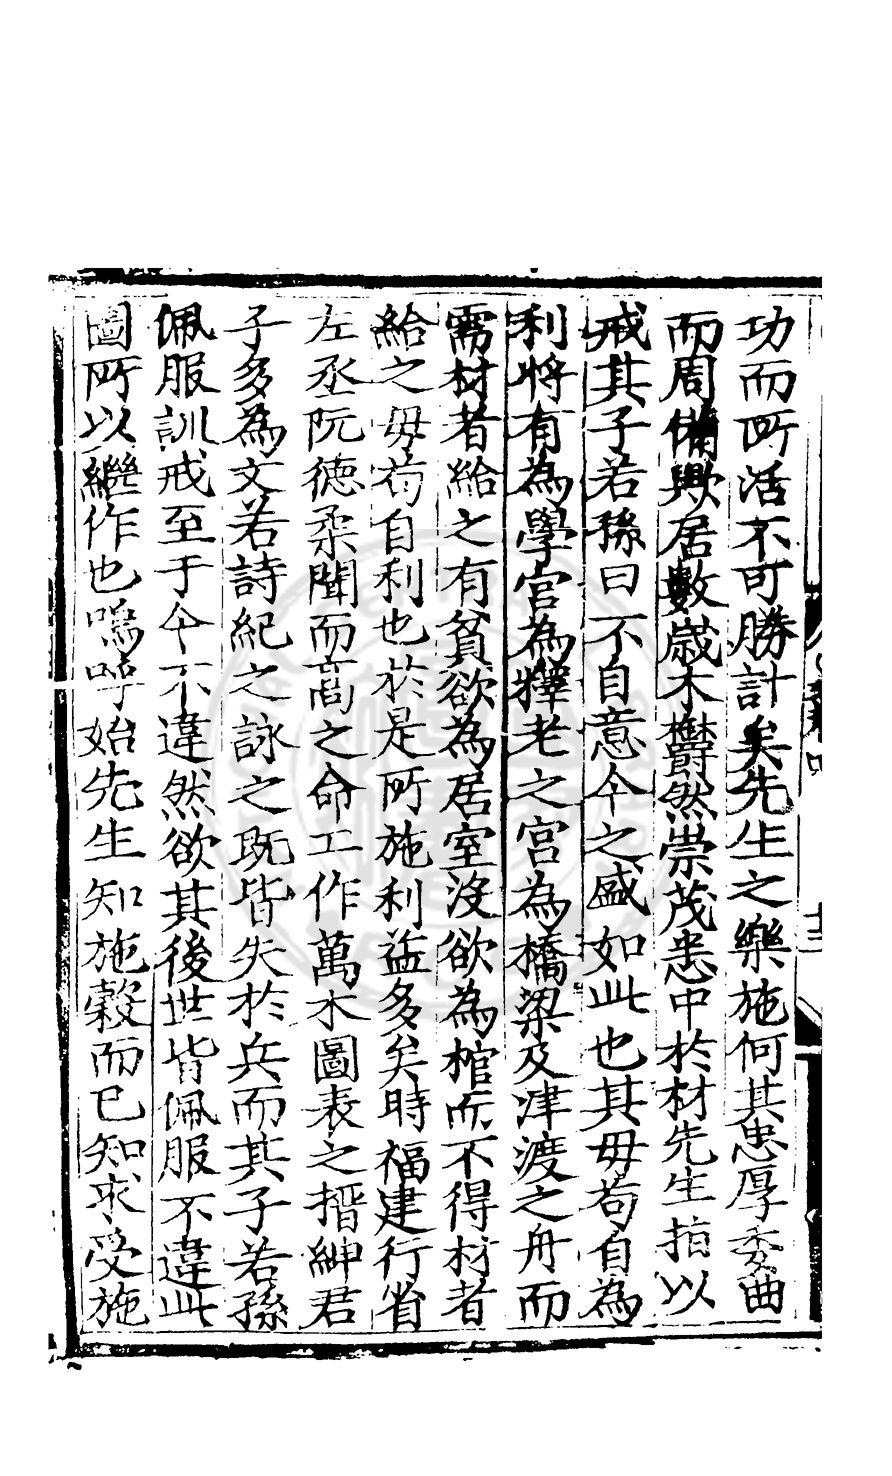 功而所活不可勝計矣先生之樂施何其忠厚委曲
而周備歟居數歲木欝然崇茂悉中於材先生指以
戒其子若孫曰不自意今之盛如此也其毋苟自為
利將有為學官為釋老之宮為橋梁及津渡之舟而
需材者給之有貧欲為居室沒欲為棺而不得材者
給之毋苟自利也於是所施利益多矣時福建行省
左丞阮德柔聞而高之命工作萬木圖表之搢紳君
子多為文若詩紀之詠之既皆失於兵而其子若孫
佩服訓戒至于今不違然欲其後世皆佩服不違此
圖所以繼作也嗚呼始先生知施穀而已知求受施